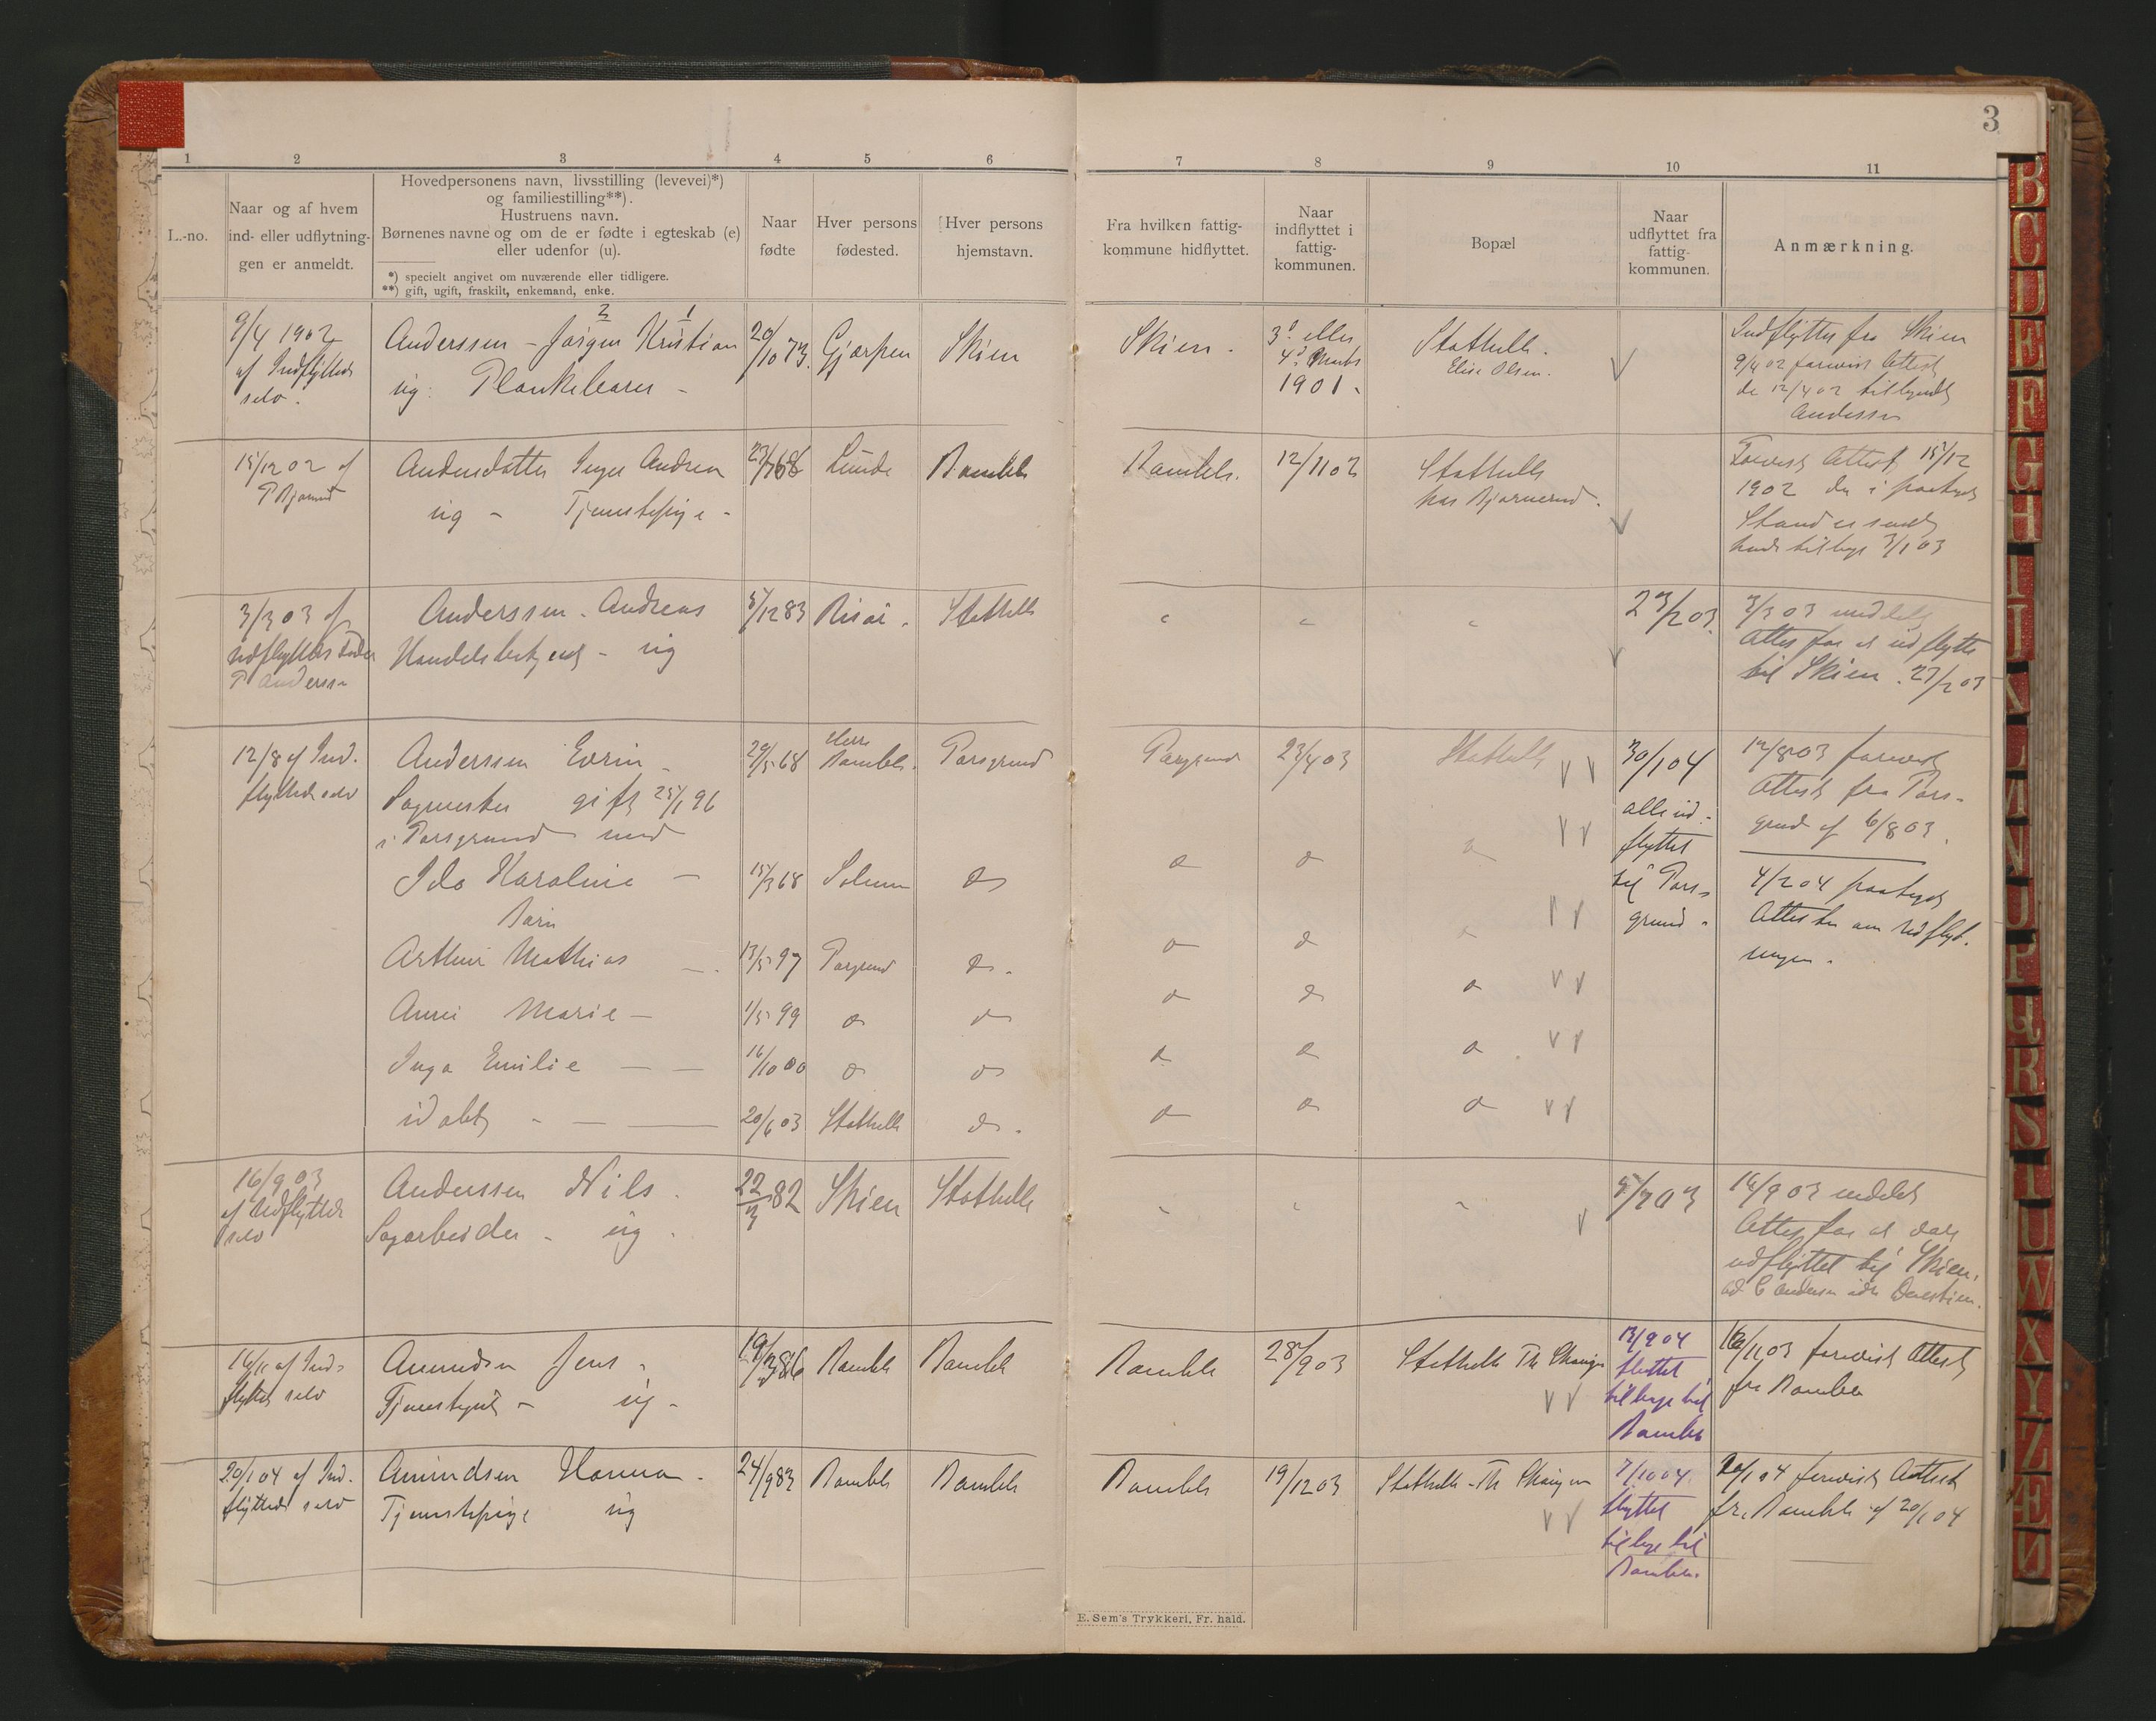 3
1 2 3 4 5 6 7 8 9 10 11
L.-no.
Naar og af hvem
ind- eller udflytnin-
gen er anmeldt.
Hovedpersonens navn, livsstilling (levevei)*)
og familiestilling**).
Hustruens navn.
Børnenes navne og om de er fødte i egteskab (e)
eller udenfor (u).
*) specielt angivet om nuværende eller tidligere.
**) gift, ugift, fraskilt, enkemand, enke.
Naar
fødte
Hver persons
fødested.
Hver persons
hjemstavn.
Fra hvilken fattig-
kommune hidflyttet.
Naar
indflyttet i
fattig-
kommunen.
Bopæl
Naar
udflyttet fra
fattig-
kommunen.
Anmærkning.
9/4 1902
af Indflytted
selv.
2 1
Anderssen - Jørgen Kristian
ug. Plankebærer -
20/10 73.
Gjerpen
Skien
Skien.
3d eller
4d Marts
1901.
Stathelle.
Elise Olsen.
Indflyttet fra Skien
9/4 02 forevist Attest
de 12/4 02 tilsendt
Anderssen
15/12 02 af
Andersdatter Inger Andrea
ug - Tjenestepige -
23/7 68
Lunde
Bamble
Bamble.
12/11 02
Stathelle
hos Bjørnerud.
Forevist Attest 15/12
1902 den i paategnet
Stand er sendt
hende tilbage 3/1 03
3/3 03 af
udflyttedes Fader
P Anderssen
Anderssen. Andreas
Handelsbetjent - ug
5/12 83
Risør.
Stathelle
" " "
23/2 03.
3/3 03 meddelt
Attest for at udflytte
til Skien. 23/2 03
12/8 af Ind-
flyttede selv
Anderssen Edvin -
Sagmester gift 25/1 96
i Porsgrund med
29/5 68
Bamble.
Porsgrund
Porsgrund
23/4 03
Stathelle
30/1 04
alle ud-
flyttet
til Pors-
grund.
12/8 03 forevist
Attest fra Pors-
grund af 6/8 03.
4/2 04 paategnet
Attesten om udflyt-
ningen.
Ida Karoline -
15/3 68
Solum
do
Barn
Arthur Mathias -.
13/5 97
Porsgrund
do.
Anni Marie -
1/5 99
do
do
Inga Emilie - -
16/10 00
do
do
udøbt - - -
20/6 03
Stathelle
do.
16/9 03
af Udflyttede
selv
Anderssen Nils.
Sagarbeider - ug.
22/3 82
Skien
Stathelle
" " "
5/7 03
16/9 03 meddelt
Attest for at være
udflyttet til Skien.
16/11 af Ind-
flytted selv
Amundsen Jens -
Tjenestegut - ug -
19/3 86
Bamble
Bamble
Bamble
28/9 03
Stathelle Th
13/9 04
flyttet
tilbage til
Bamble
16/11 03 forevist Attest
fra Bamble
20/1 04 af Ind-
flyttede selv
Amundsen Hanna.
Tjenestepige ug
24/9 83
Bamble
Bamble
Bamble
19/12 03
Stathelle - Th
7/10 04.
flyttet
tilbage til
Bamble.
20/1 04 forevist Attest
fra Bamble af 20/1 04
E. Sem's Trykkeri, Fr. hald.
B
C
D
E
F
G
H
I
J
K
L
M
N
O
P
Q
R
S
T
U
W
X
Y
Z
Æ
Ø